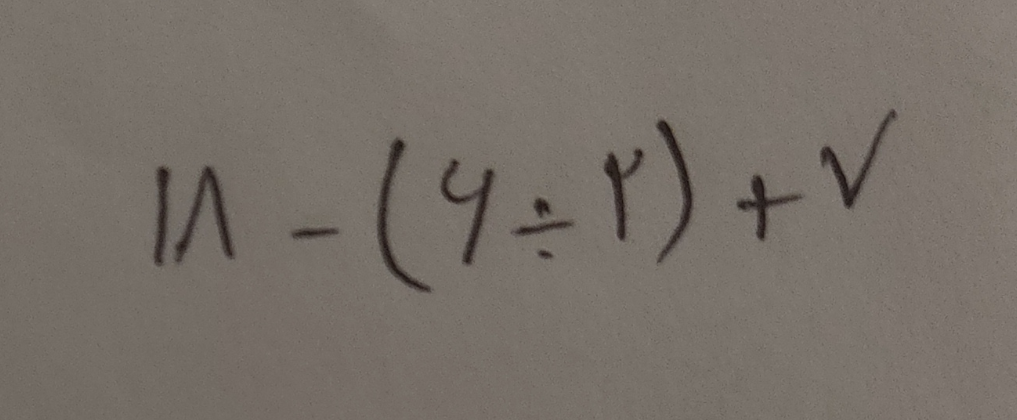 ۱۸ - (۶ ÷ ۲) + ۷